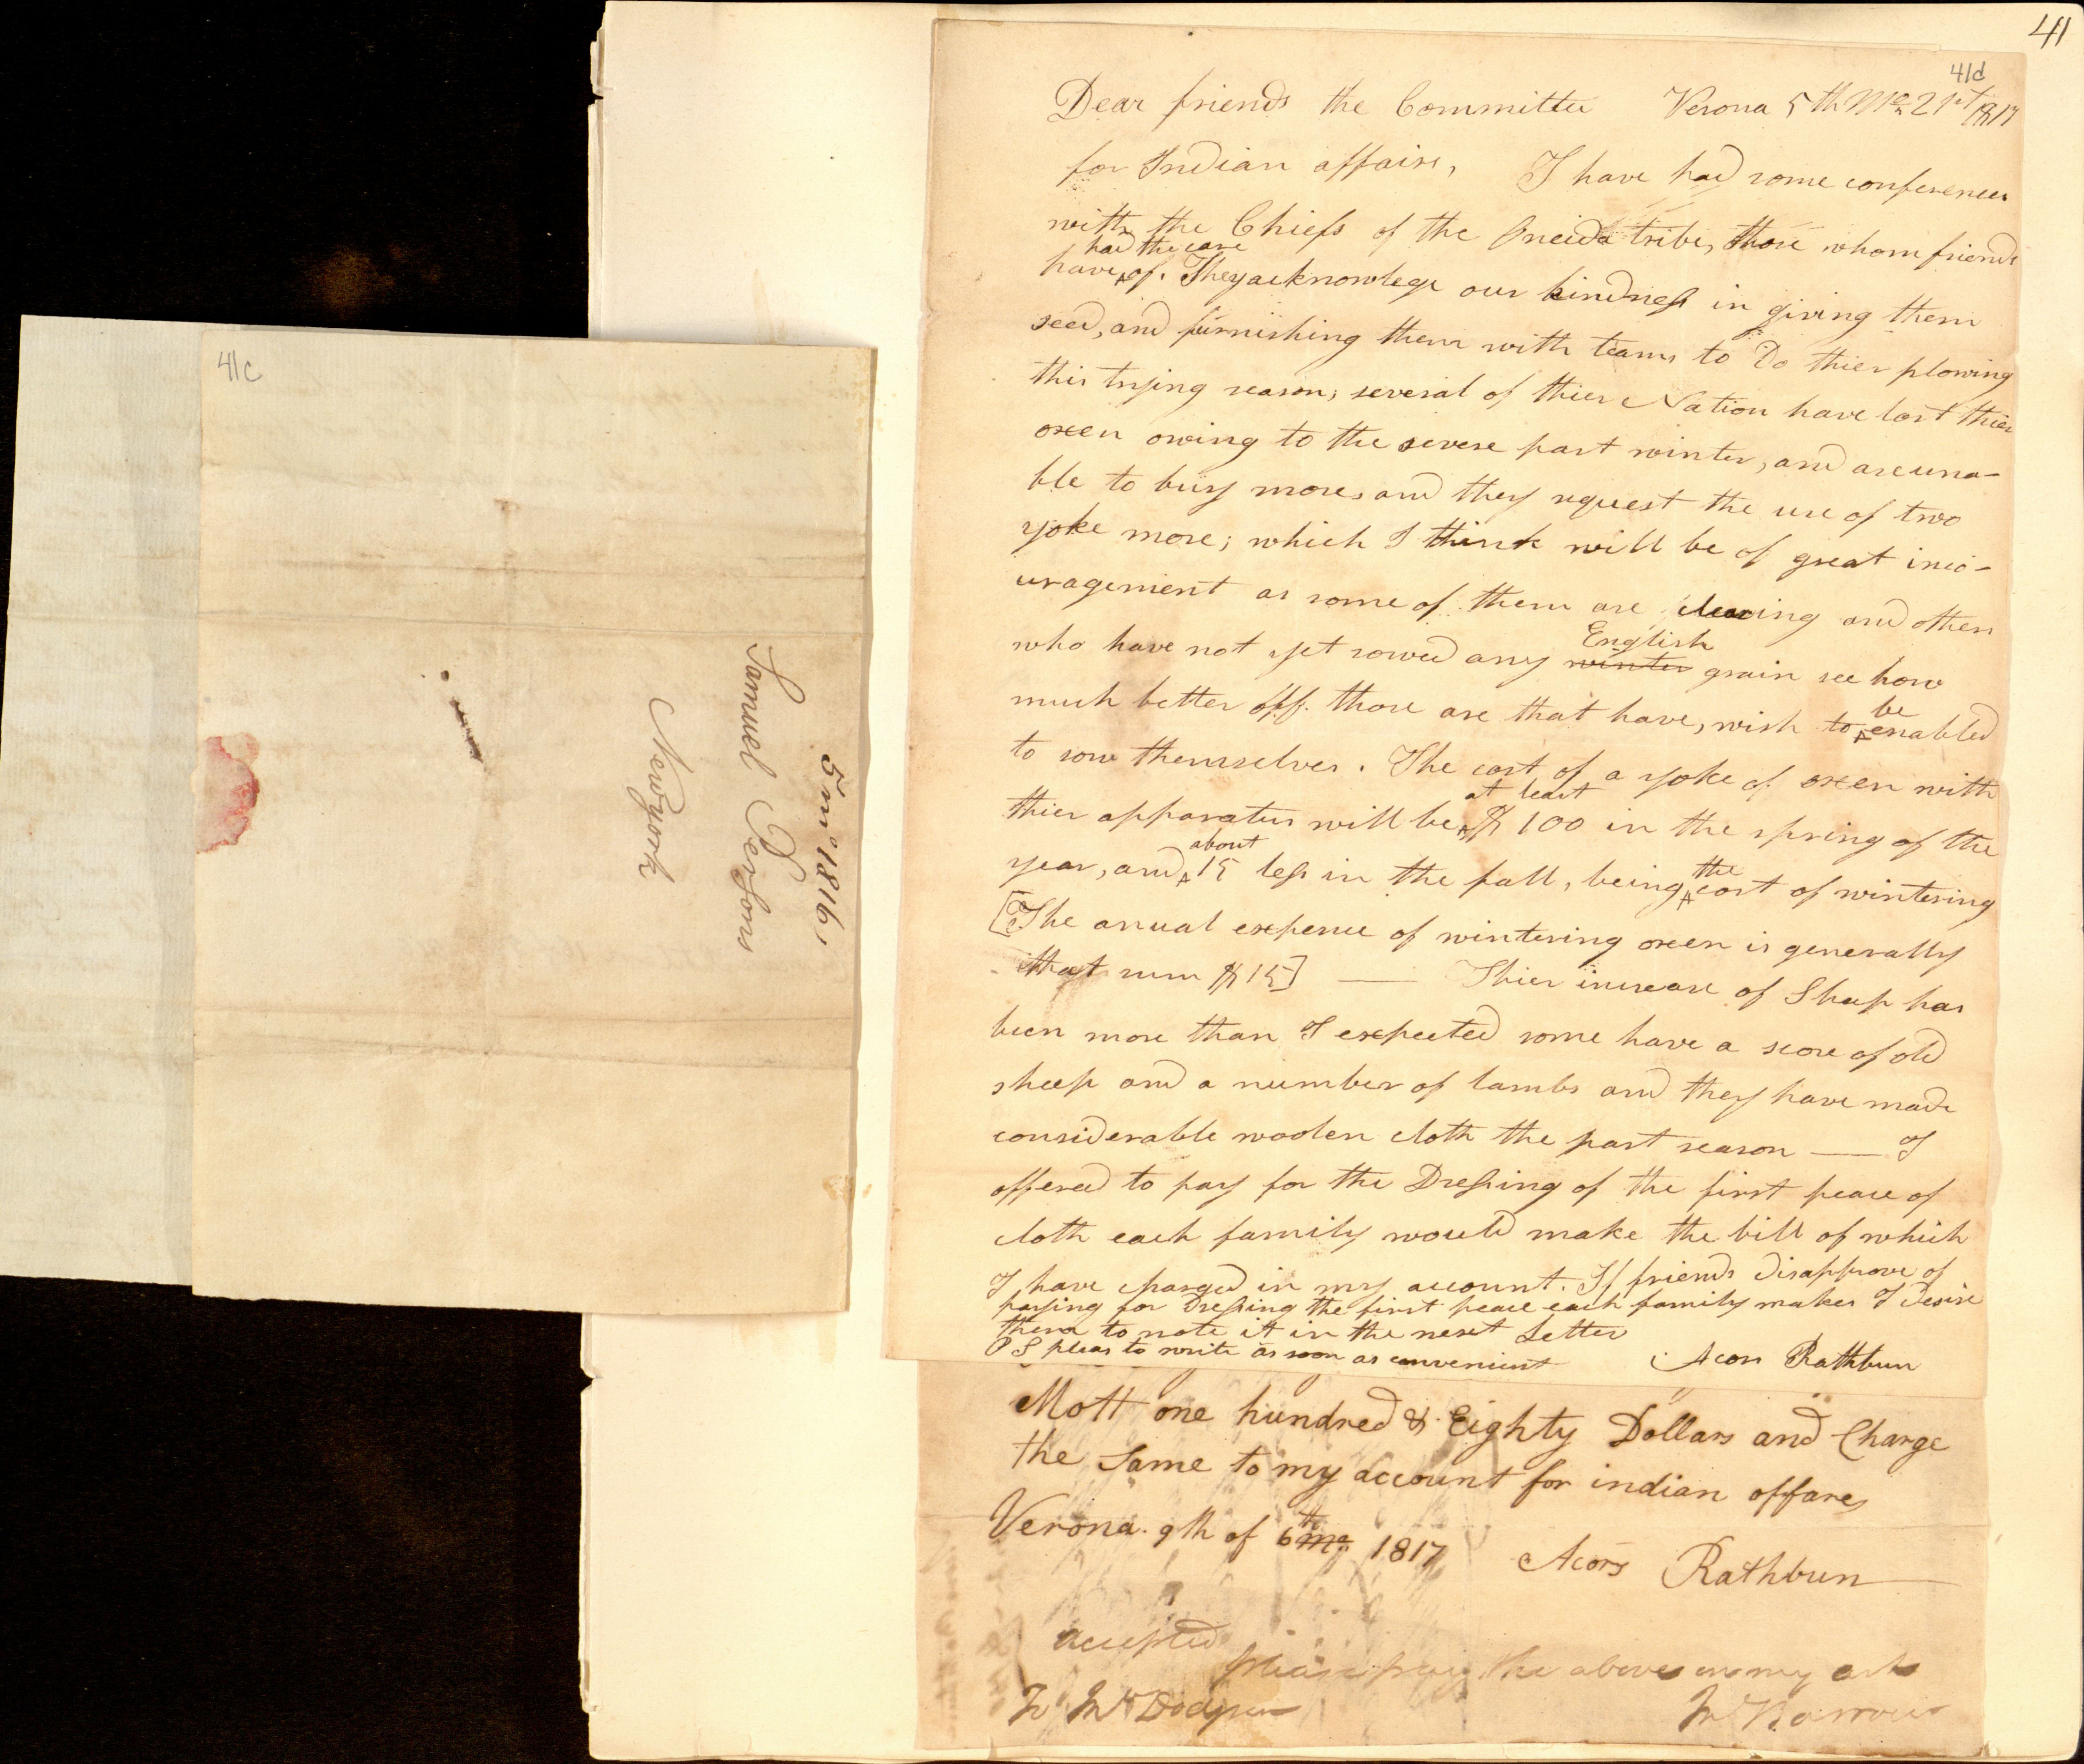 41
41d
Dear friends the Committee Verona 5th Mo 21st 1817
for Indian affairs, I have had some conferences
with the Chiefs of the Oneida tribe, those whom friends
had the care
have of. They acknowlege our kindness in giving them
seed, and furnishing them with teams to Do thier plowing
this trying season; several of thier Nation have lost thier
oxen owing to the severe past winter, and are una-
ble to buy more, and they request the use of two
yoke more; which I think will be of great inco-
uragement as some of them are clearing and others
English
who have not yet sowed any winter grain see how
much better off those are that have, wish to be enabled
to sow themselves. The cost of a yoke of oxen with
at least
thier apparatus will be $ 100 in the spring of the
about the
year, and 15 less in the fall, being cost of wintering
[The anual expence of wintering oxen is generally
that sum $15] — Thier increase of Sheep has
been more than I expected some have a score of old
sheep and a number of lambs and they have made
considerable woolen cloth the past season — I
offered to pay for the Dressing of the first peace of
cloth each family would make the bill of which
I have charged in my account. If friends disapprove of
paying for Dressing the first peace each family makes I desire
them to note it in the next Letter
PS pleas to write as soon as convenient Acors Rathbun
Mott one hundred & Eighty Dollars and Charge
the Same to my account for indian offares
Verona. 9th of 6th mo. 1817 Acors Rathbun
accepted
please pay the above on my act
To Mr Dodge
41c
5 mo 1816,
Samuel Persons
Newyork